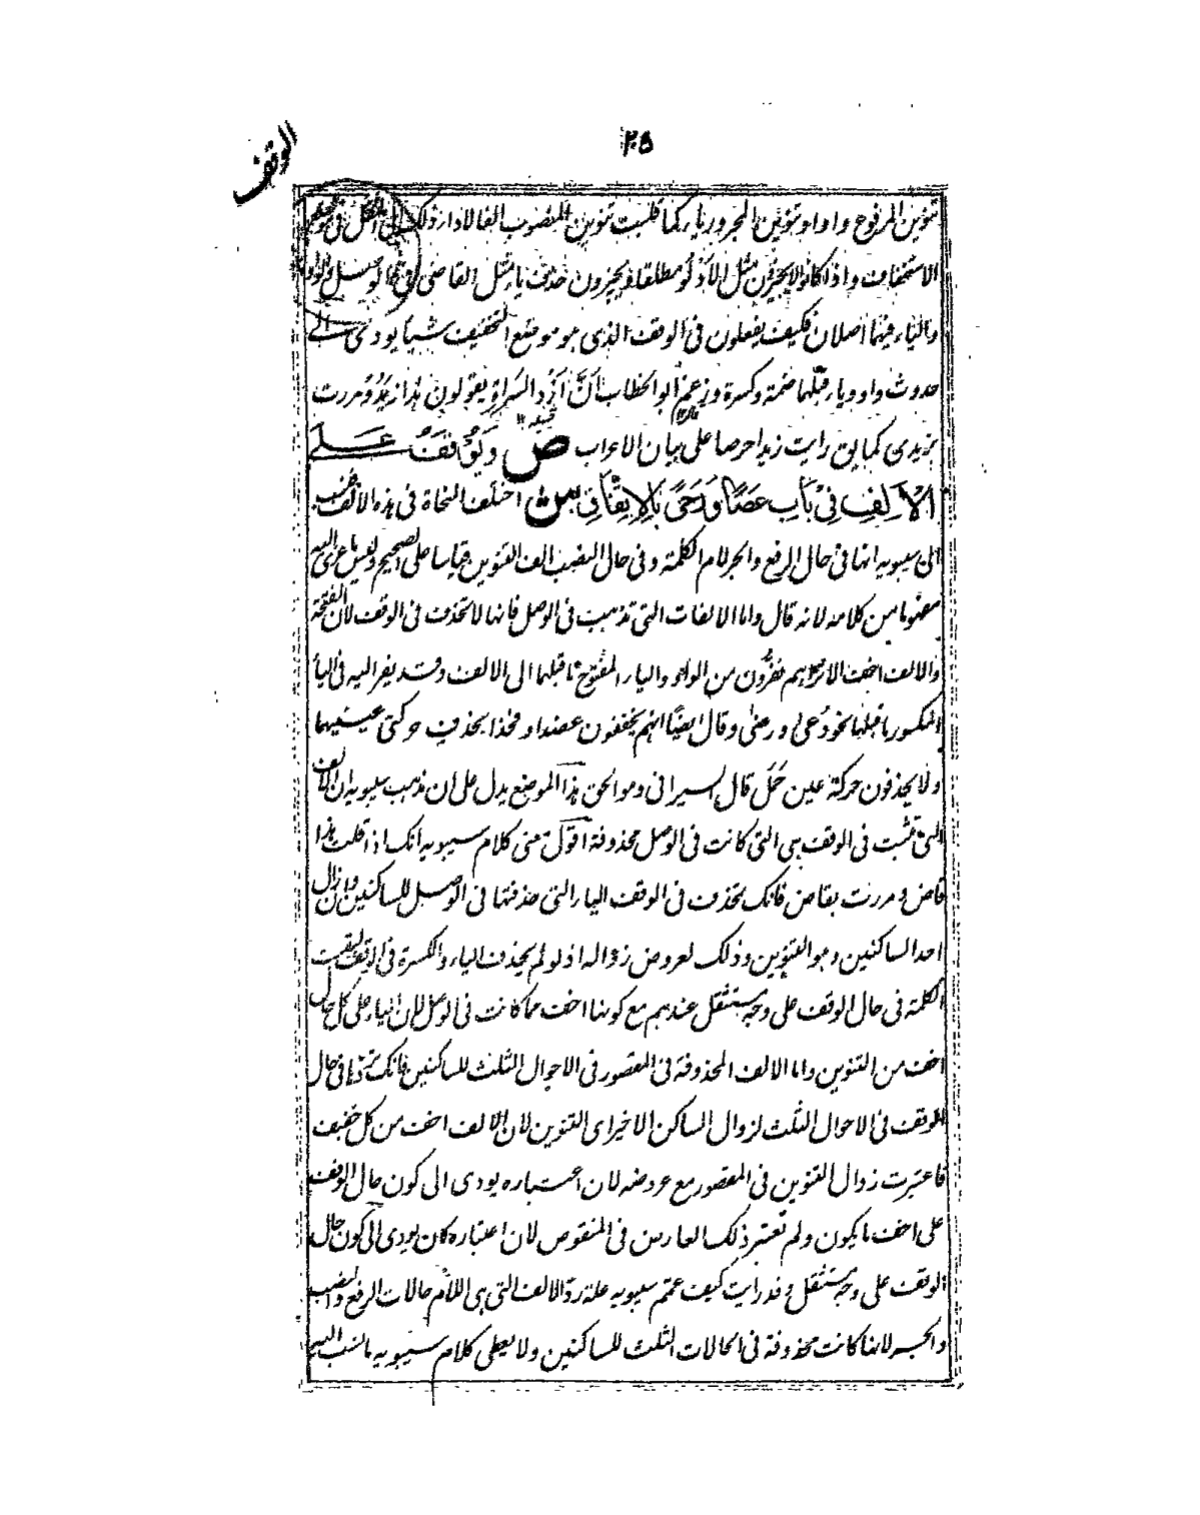 ٢٥
الوقف
تنوين المرفوع واوا وتنوين المجرور ياء كما قلبت تنوين المنصوب الفا لاداء ذلك الى الثقل فى موضع
الاستخفاف واذا كانوا لا يجيزون مثل الادلو مطلقا ويجيزون حذف ياء مثل القاضى فى الوصل والواو
والياء فيهما اصلان فكيف يفعلون فى الوقف الذى هو موضع التخفيف شيئا يودى الى
حدوث واو وياء قبلها ضمة وكسرة وزعم ابو الخطاب انَّ ازد السَراةِ يقولون هذا زيدُو ومررت
بزيدى كما يق رايت زيدا حرصا على بيان الاعراب ص وَيُوقَفُ عَلَى
الاَلِفِ فِىْ بَابِ عَصًا وَرَحًى بِالاِتِفَاقِ ش اختلف النحاة فى هذه الالف فنسب
الى سيبويه انها فى حال الرفع والجر لام الكلمة وفى حال النصب الف التنوين قياسا على الصحيح وليس ما عزى اليه
مفهوما من كلامه لانه قال واما الالفات التى تذهب فى الوصل فانها لا تحذف فى الوقف لان الفتحة
والالف اخف الا تراهم يفرُّون من الواو والياء المفتوح ما قبلها الى الالف وقد يفر اليه فى الياء
المكسور ما قبلها نحو دُعَى ورضَى وقال ايضًا انهم يخففون عضدا وفخذا بحذف حركتى عينيهما
ولا يحذفون حركة عين جَمَل قال السيرافى وهو الحق هذا الموضع يدل على ان مذهب سيبويه ان الالف
التى تثبت فى الوقف هى التى كانت فى الوصل محذوفة اقول معنى كلام سيبويه انك اذا قلت هذا
قاض ومررت بقاض فانك تحذف فى الوقف الياء التى حذفتها فى الوصل للساكنين وان زال
احد الساكنين وهو التنوين وذلك لعروض زواله اذ لو لم يحذف الياء والكسرة فى الوقف لبقيت
الكلمة فى حال الوقف على وجه مستثقل عندهم مع كونها اخف مما كانت فى الوصل لان الياء على كل حال
اخف من التنوين واما الالف المحذوفة فى المقصور فى الاحوال الثلث للساكنين فانك تردّها فى حال
الوقف فى الاحوال الثلث لزوال الساكن الاخير اى التنوين لان الالف اخف من كل خفيف
فاعتبرت زوال التنوين فى المقصور مع عروضه لان اعتباره يودى الى كون حال الوقف
على اخف ما يكون ولم تعتبر ذلك العارض فى المنقوص لان اعتباره كان يودى الى كون حال
الوقف على وجه مستثقل وقد رايت كيف عمم سيبويه علة ردّ الالف التى هى اللام حالات الرفع والنصب
والجر لانها كانت محذوفة فى الحالات الثلث للساكنين ولا يعطى كلام سيبويه ما نسب اليه